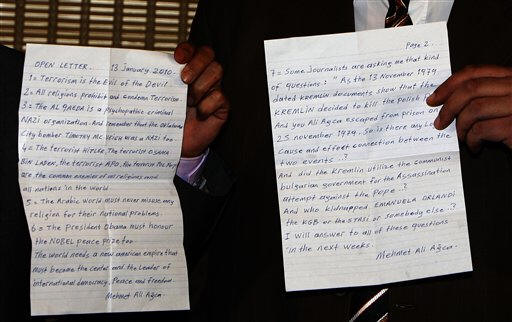 OPEN LETTER. 13 January 2010.
1= Terrorism is the Evil of the Devil.
2= All religions prohibit and condemn Terrorism.
3= The AL QAEDA is a psychopathic criminal
NAZI organization. And remember that the Oklahoma
City bomber TIMOTHY MC VEIGH was a NAZI too.
4= The terrorist HITLER, The terrorist OSAMA
BIN LADEN, the terrorist APO, the terrorist
are the common enemies of all religions and
all nations in the world
5= The Arabic world must never misuse any
religion for their National problems.
6= The President Obama must honour
the NOBEL peace prize too.
The world needs a new american empire that
must become the center and the Leader of
international democracy, Peace and freedom.
Mehmet Ali Ağca
Page 2...
7= Some Journalists are asking me that kind
of questions: "As the 13 November 1979
dated KREMLIN documents show that the
KREMLIN decided to kill the polish
And you Ali Ağca escaped from prison on
25 november 1979.. So is there any
Cause and effect connection between the
two events..?
And did the Kremlin utilize the communist
bulgarian government for the Assassination
attempt against the Pope..?
And who kidnapped EMANUELA ORLANDI
the KGB or the STASI or somebody else..?
I will answer to all of these questions
in the next weeks.
Mehmet Ali Ağca